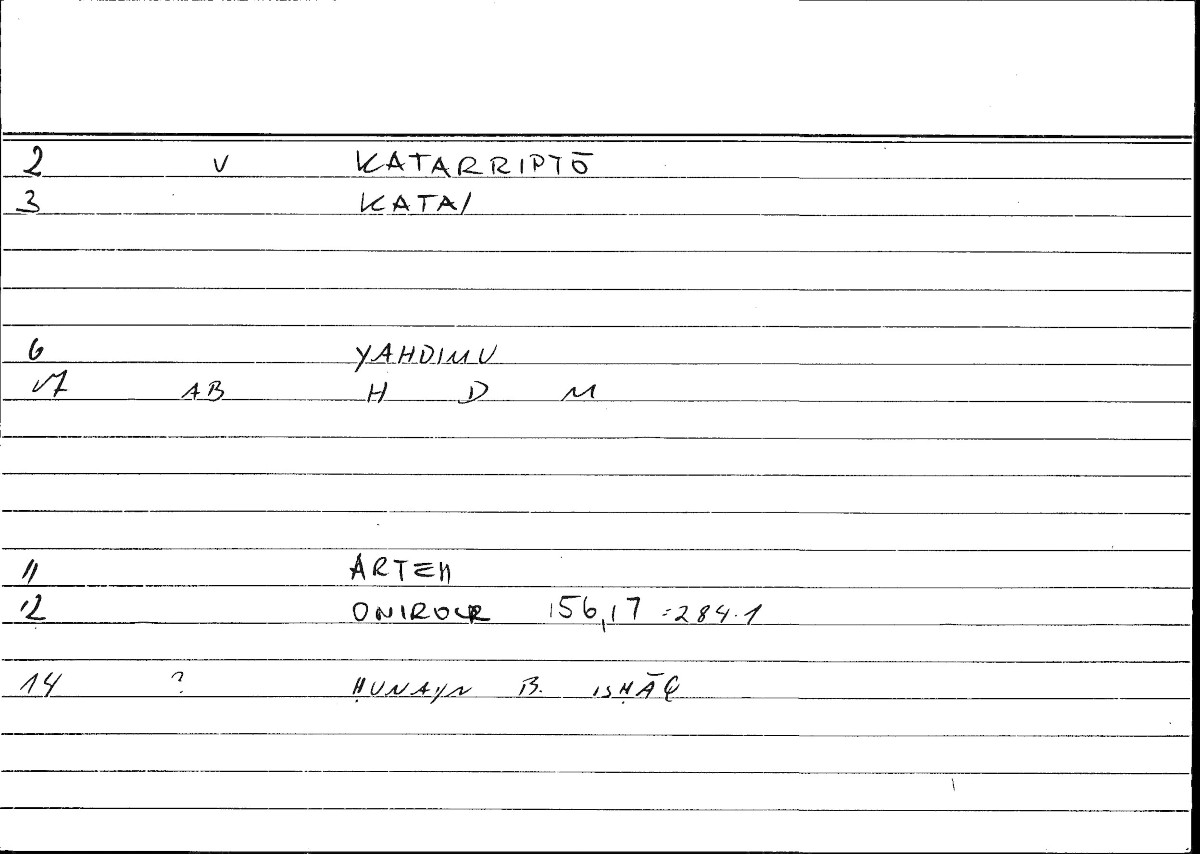 2 V KATARRIPTŌ
3 KATAI
6 YAHDIMU
7 AB H D M
11 ARTEM
12 ONIROCR 156,17 =284.1
14 ? ḤUNAYN B. ISḤĀQ